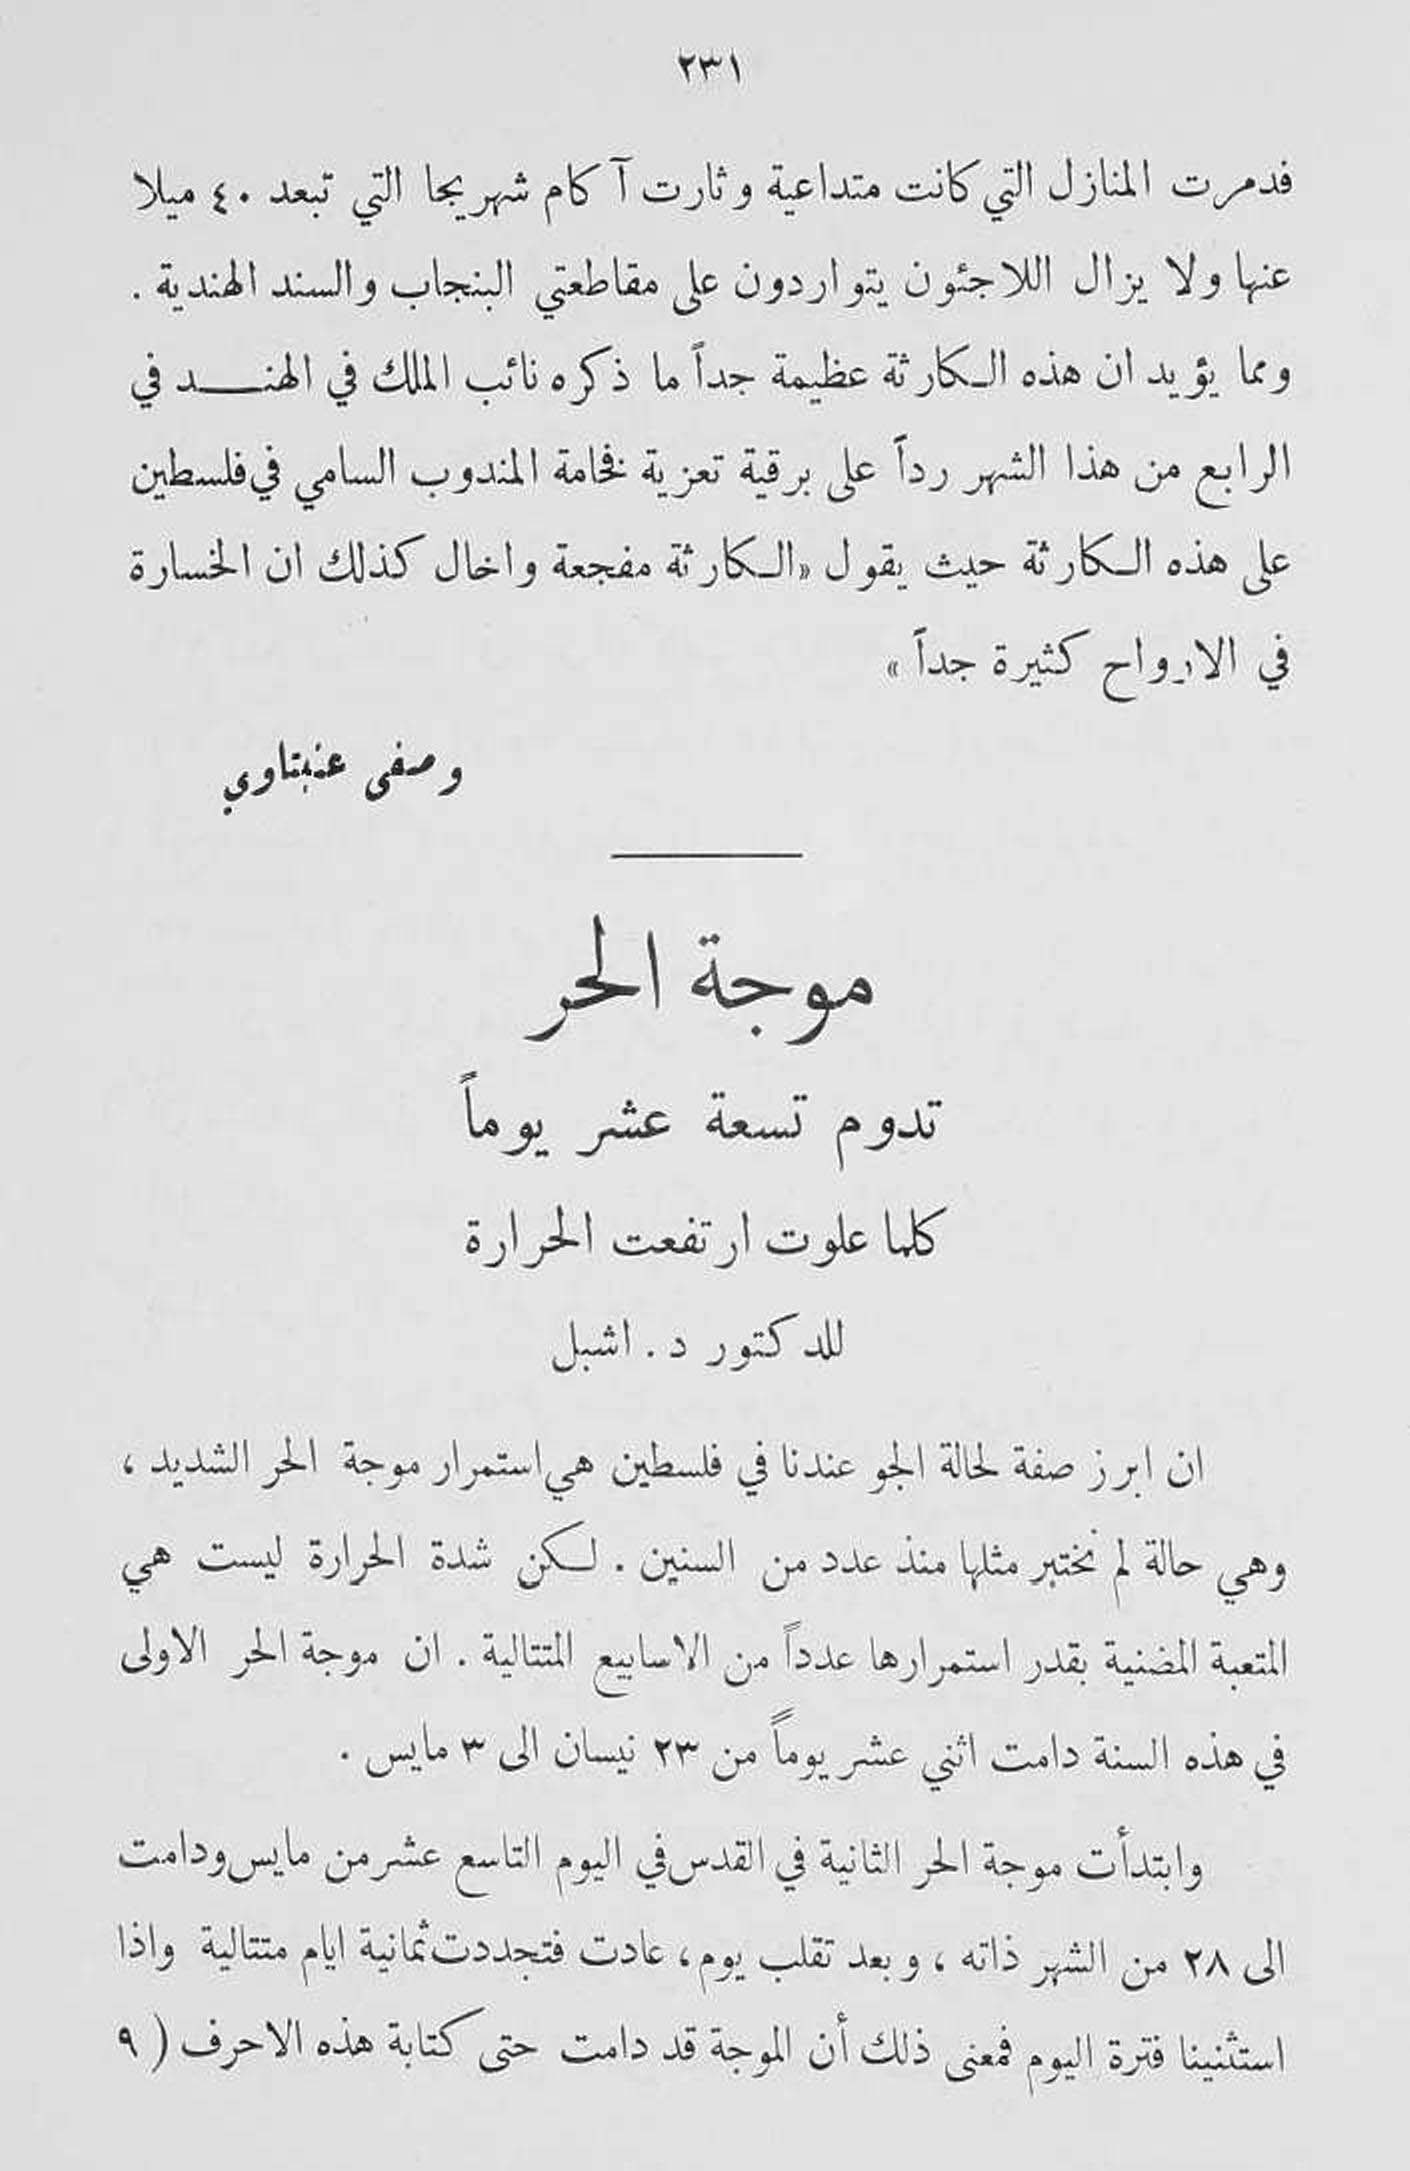 ٢٣١
فدمرت المنازل التي كانت متداعية وثارت آكام شهريجا التي تبعد ٤٠ ميلا
عنها ولا يزال اللاجئون يتواردون على مقاطعتي البنجاب والسند الهندية .
ومما يؤيد ان هذه الكارثة عظيمة جداً ما ذكره نائب الملك في الهنـــد في
الرابع من هذا الشهر رداً على برقية تعزية فخامة المندوب السامي في فلسطين
على هذه الكارثة حيث يقول «الكارثة مفجعة واخال كذلك ان الخسارة
في الارواح كثيرة جداً »
وصفي عنبتاوي
موجة الحر
تدوم تسعة عشر يوماً
كلما علوت ارتفعت الحرارة
للدكتور د . اشبل
ان ابرز صفة لحالة الجو عندنا في فلسطين هي استمرار موجة الحر الشديد ،
وهي حالة لم نختبر مثلها منذ عدد من السنين . لكن شدة الحرارة ليست هي
المتعبة المضنية بقدر استمرارها عدداً من الاسابيع المتتالية . ان موجة الحر الاولى
في هذه السنة دامت اثني عشر يوماً من ٢٣ نيسان الى ٣ مايس .
وابتدأت موجة الحر الثانية في القدس في اليوم التاسع عشر من مايس ودامت
الى ٢٨ من الشهر ذاته ، وبعد تقلب يوم ، عادت فتجددت ثمانية ايام متتالية واذا
استثنينا فترة اليوم فمعنى ذلك أن الموجة قد دامت حتى كتابة هذه الاحرف ( ٩